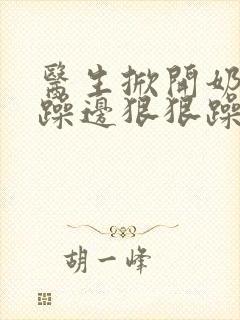 醫生掀開奶
躁邊狠狠躁
胡一峰